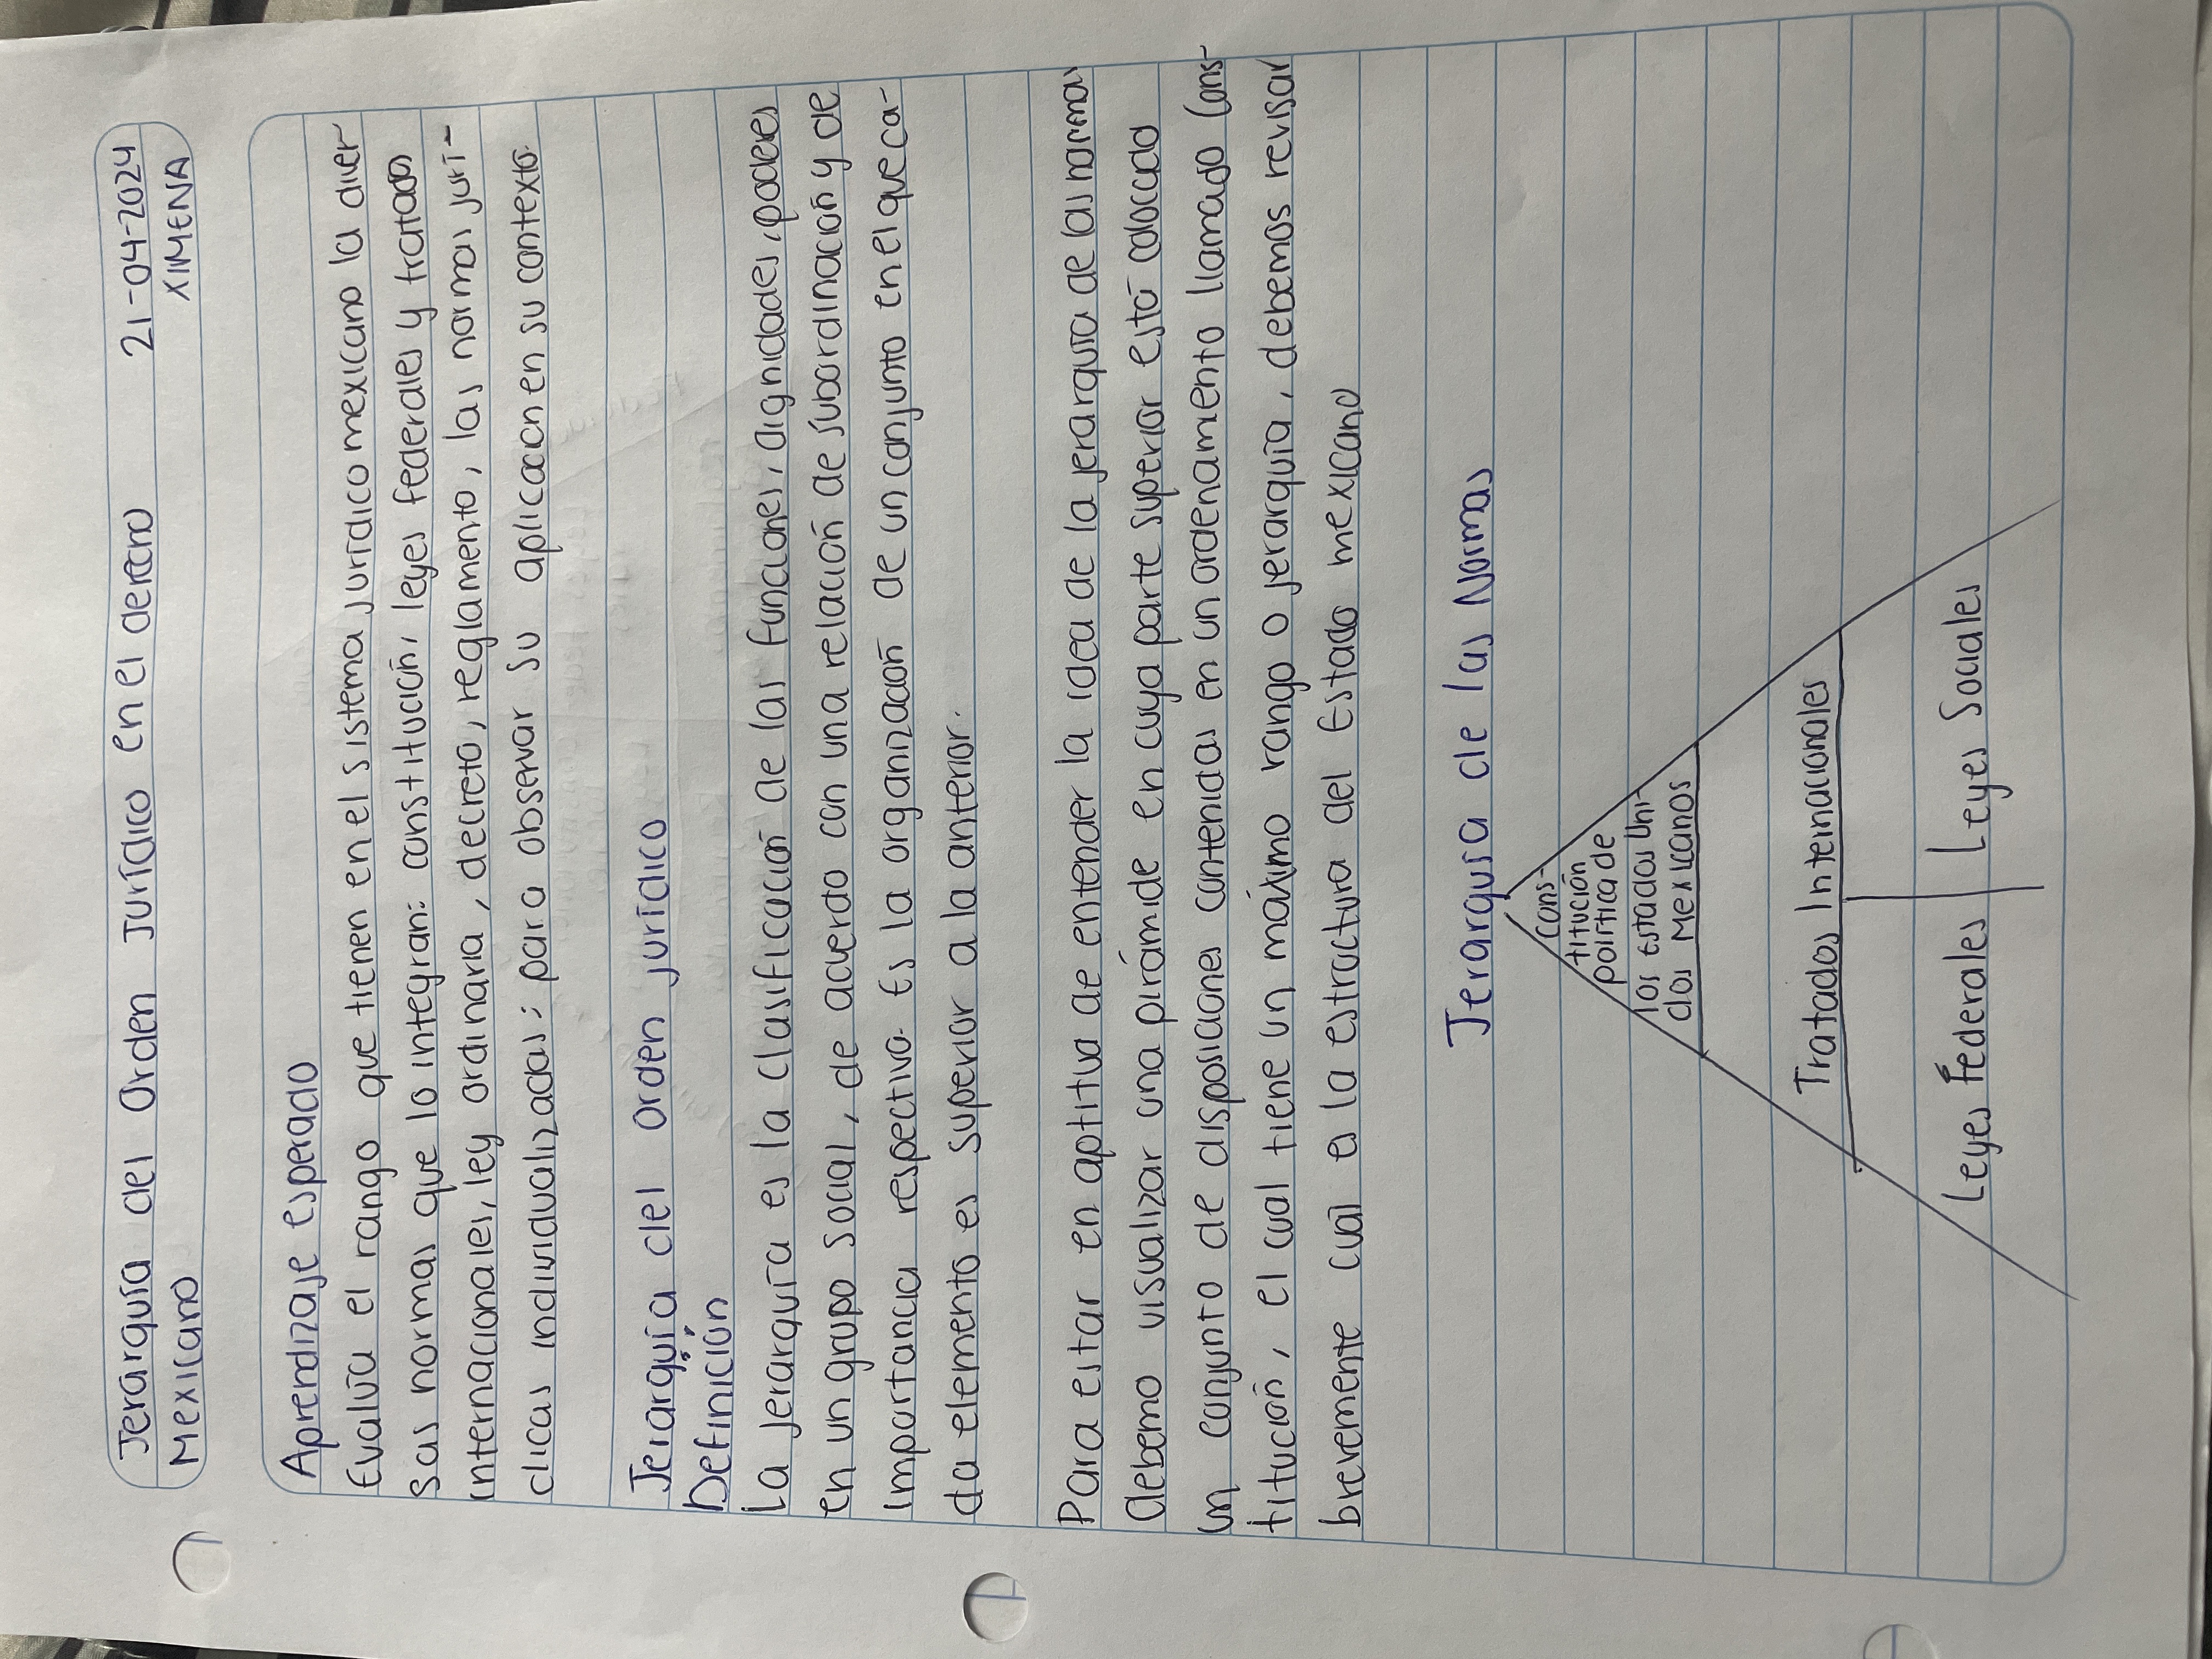 Jerarquía del Orden Jurídico en el derecho
Mexicano
21-04-2024
XIMENA
Aprendizaje esperado
Evalúa el rango que tienen en el sistema jurídico mexicano la diver-
sas normas que lo integran: constitución, leyes federales y tratados
internacionales, ley ordinaria, decreto, reglamento, las normas jurí-
dicas individualizadas; para observar su aplicación en su contexto.
Jerarquía del orden jurídico
Definición
La jerarquía es la clasificación de las funciones, dignidades, poderes
en un grupo social, de acuerdo con una relación de subordinación y de
importancia respectiva. Es la organización de un conjunto en el que ca-
da elemento es superior a la anterior.
Para estar en aptitud de entender la idea de la jerarquía de las normas
debemo visualizar una pirámide en cuya parte superior está colocado
un conjunto de disposiciones contenidas en un ordenamiento llamado Cons-
titución, el cual tiene un máximo rango o jerarquía, debemos revisar
brevemente cuál es la estructura del Estado mexicano
Jerarquía de las Normas
Cons-
titución
política de
los estados Uni-
dos Mexicanos
Tratados Internacionales
Leyes Federales
Leyes Sociales